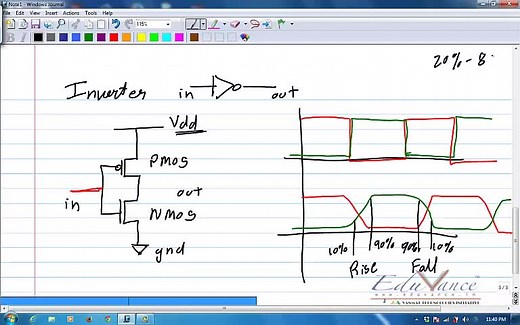 Note1 - Windows Journal
File Edit View Insert Actions Tools Help
115%
20% - 8
Inverter in out
Vdd
PMOS
out
in
NMOS
gnd
10% 90% 90% 10%
Rise Fall
EduVance
www.eduvance.in
11:40 PM